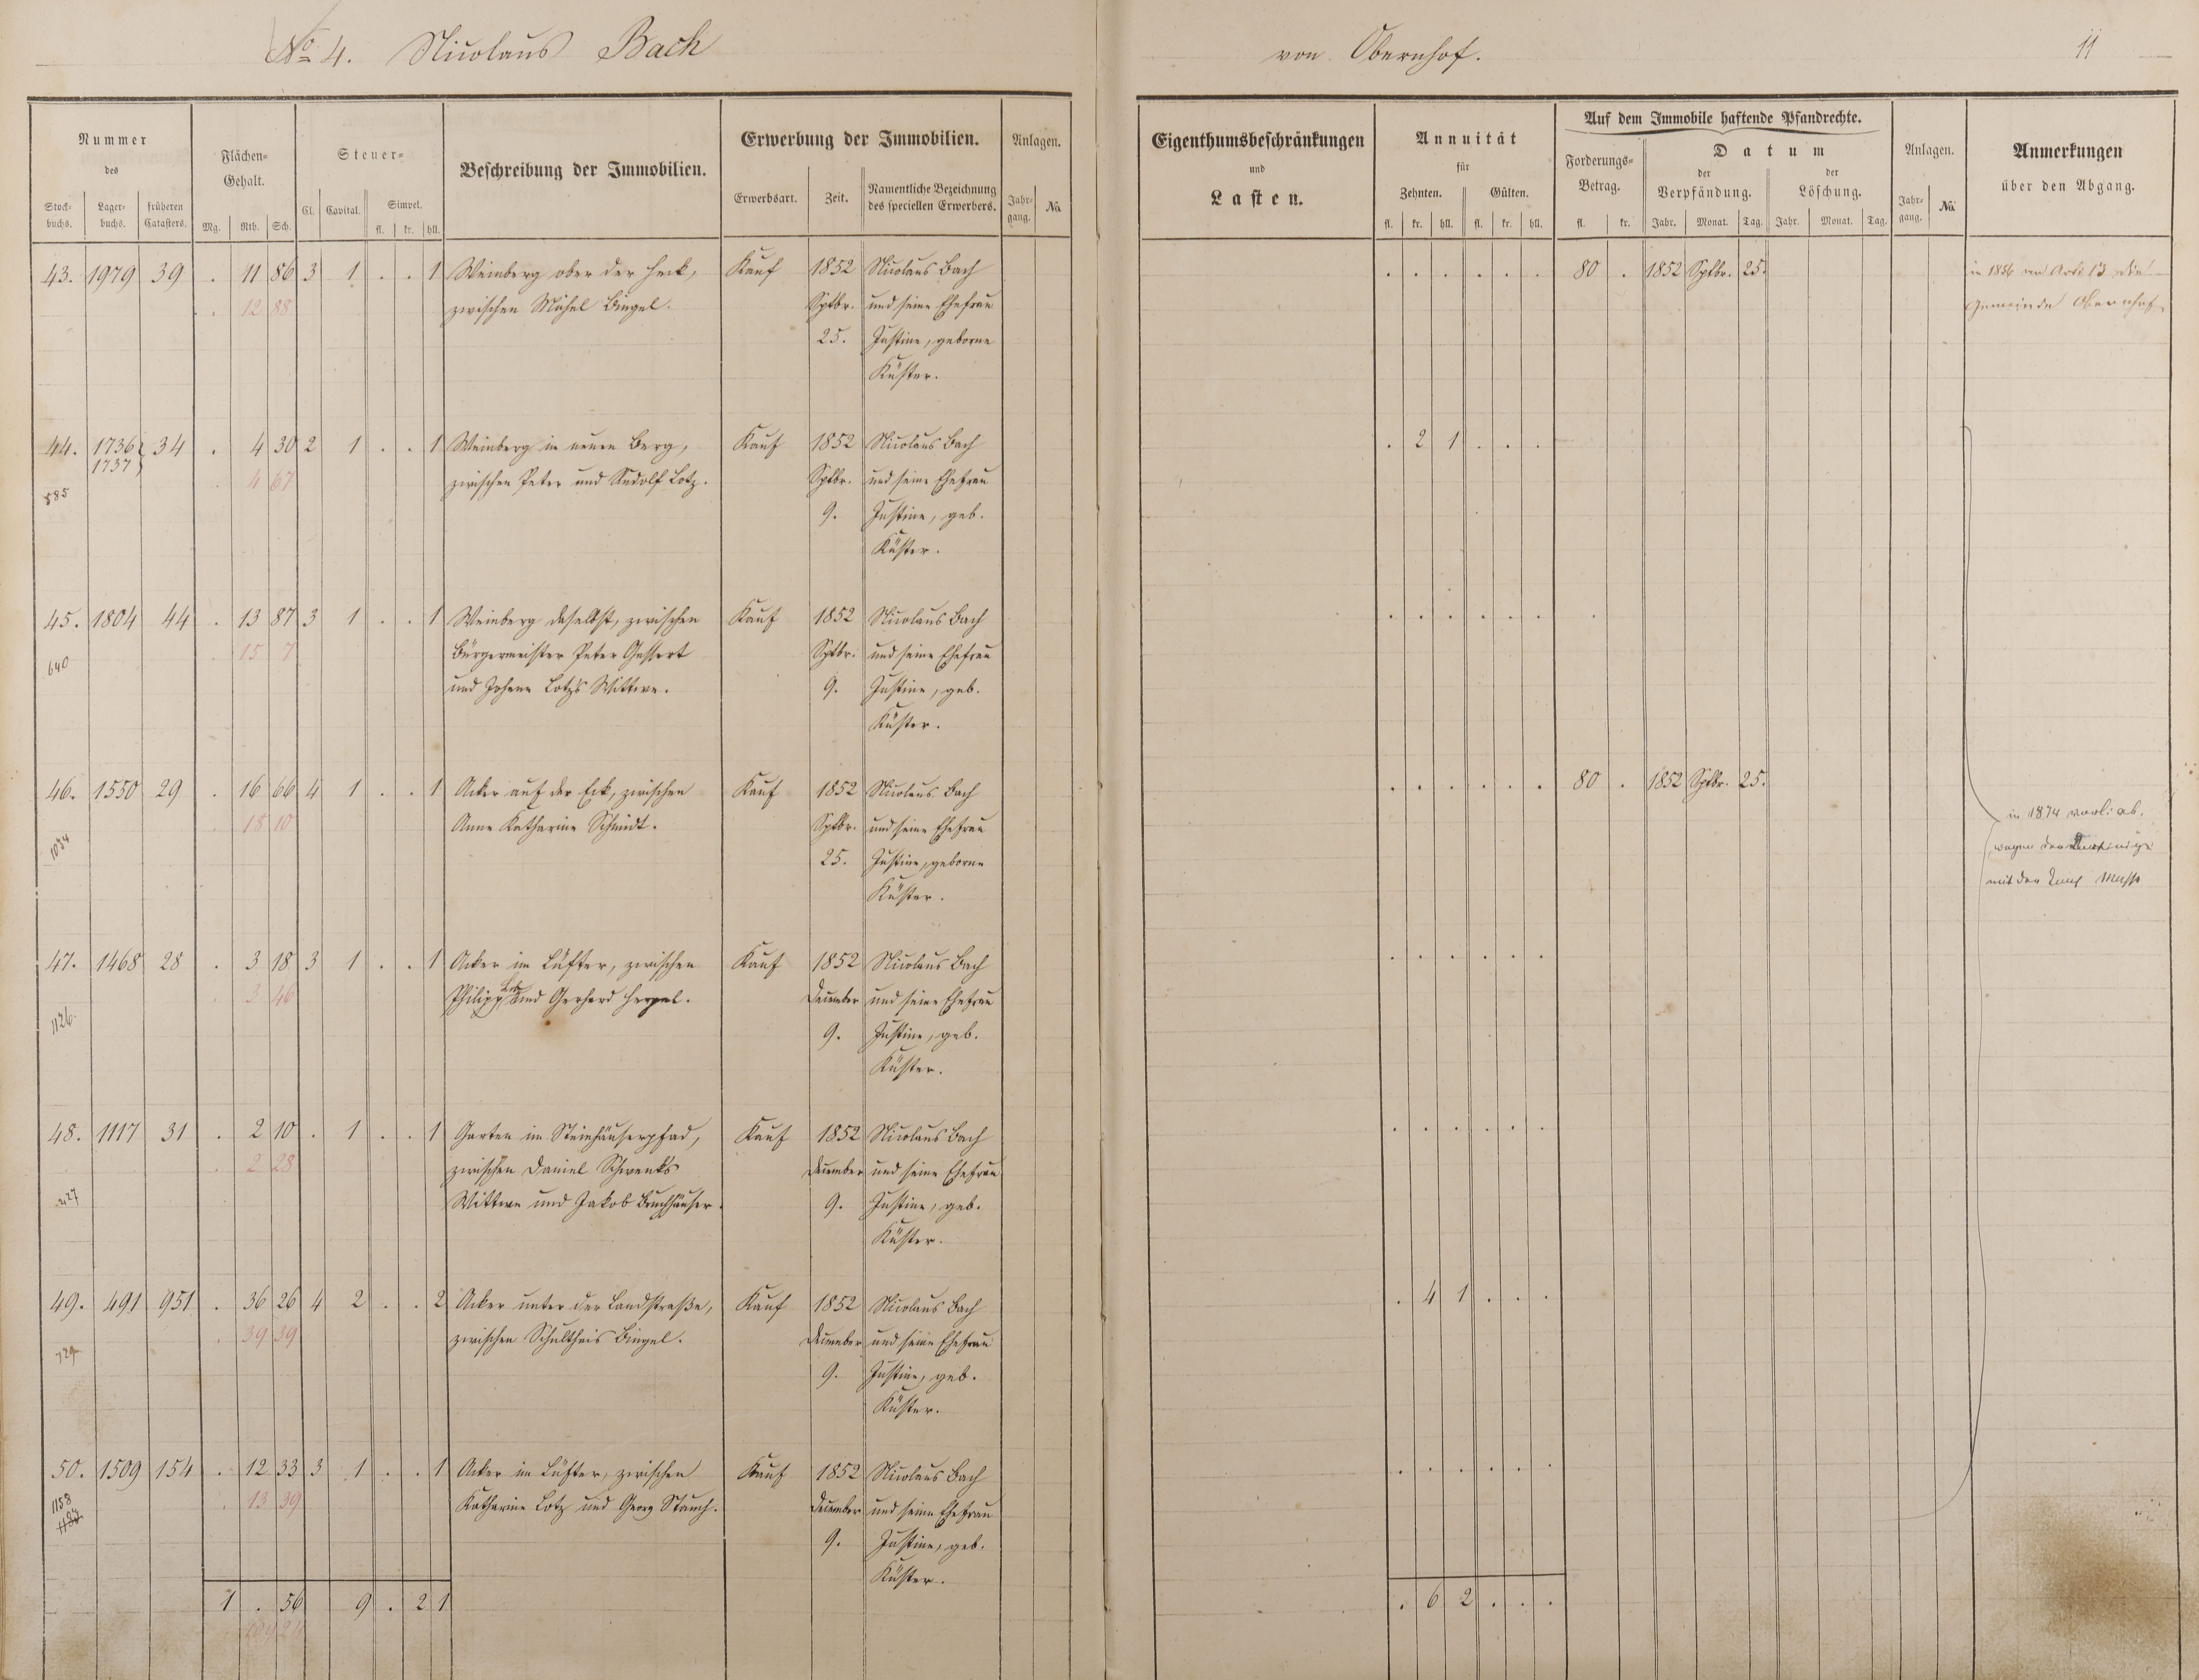 No 4. Nicolaus Bach von Obernhof. 11
Nummer des
Stockbuchs. Lagerbuchs. früheren Catasters.
Flächen-Gehalt.
Mg. Rth. Sch.
Steuer-
Cl. Capital. Simpel.
fl. kr. hll.
Beschreibung der Immobilien.
Erwerbung der Immobilien.
Erwerbsart. Zeit. Namentliche Bezeichnung des speciellen Erwerbers.
Anlagen.
Jahrgang. No.
Eigenthumsbeschränkungen
und
Lasten.
Annuität
für
Zehnten. Gülten.
fl. kr. hll. fl. kr. hll.
Auf dem Immobile haftende Pfandrechte.
Forderungs-Betrag.
fl. kr.
Datum
der Verpfändung. der Löschung.
Jahr. Monat. Tag. Jahr. Monat. Tag.
Anlagen.
Jahrgang. No.
Anmerkungen
über den Abgang.
43. 1979 39 . 11 86 3 1 . . 1 Weinberg ober der Heck, Kauf 1852 Nicolaus Bach . . . . . . 80 . 1852 Sptbr. 25. in 1856 an Art. 13 die
. 12 88 zwischen Michel Bingel. Sptbr. und seine Ehefrau Gemeinde Obernhof
25. Justine, geborne
Küster.
44. 1736 34 . 4 30 2 1 . . 1 Weinberg im neuen Berg, Kauf 1852 Nicolaus Bach . 2 1 . . .
1737
585 . 4 67 zwischen Peter und Rudolf Lotz. Sptbr. und seine Ehefrau
9. Justine, geb.
Küster.
45. 1804 44 . 13 87 3 1 . . 1 Weinberg daselbst, zwischen Kauf 1852 Nicolaus Bach . . . . . . .
640 . 15 7 Bürgermeister Peter Gessert Sptbr. und seine Ehefrau
und Johann Lotz's Wittwe. 9. Justine, geb.
Küster.
46. 1550 29 . 16 66 4 1 . . 1 Acker auf der Eck, zwischen Kauf 1852 Nicolaus Bach . . . . . . 80 . 1852 Sptbr. 25.
. 18 10 Anna Katharine Schmidt. Sptbr. und seine Ehefrau in 1874
1034 25. Justine, geborne wegen
Küster. mit der Masse
47. 1468 28 . 3 18 3 1 . . 1 Acker im Lüfter, zwischen Kauf 1852 Nicolaus Bach . . . . . .
. 3 46 Philipp Lotz und Gerhard Hergel. December und seine Ehefrau
1126. 9. Justine, geb.
Küster.
48. 1117 31 . 2 10 . 1 . . 1 Garten im Steinhäuserpfad, Kauf 1852 Nicolaus Bach . . . . . .
. 2 28 zwischen Daniel Schwenks December und seine Ehefrau
227 Wittwe und Jakob Bruchhäuser. 9. Justine, geb.
Küster.
49. 491 951 . 36 26 4 2 . . 2 Acker unter der Landstraße, Kauf 1852 Nicolaus Bach . 4 1 . . .
. 39 39 zwischen Schultheis Bingel. December und seine Ehefrau
729 9. Justine, geb.
Küster.
50. 1509 154 . 12 33 3 1 . . 1 Acker im Lüfter, zwischen Kauf 1852 Nicolaus Bach . . . . . .
1158 . 13 39 Katharine Lotz und Georg Stauch. December und seine Ehefrau
9. Justine, geb.
Küster.
1 . 56 9 . 2 1 . 6 2 . . .